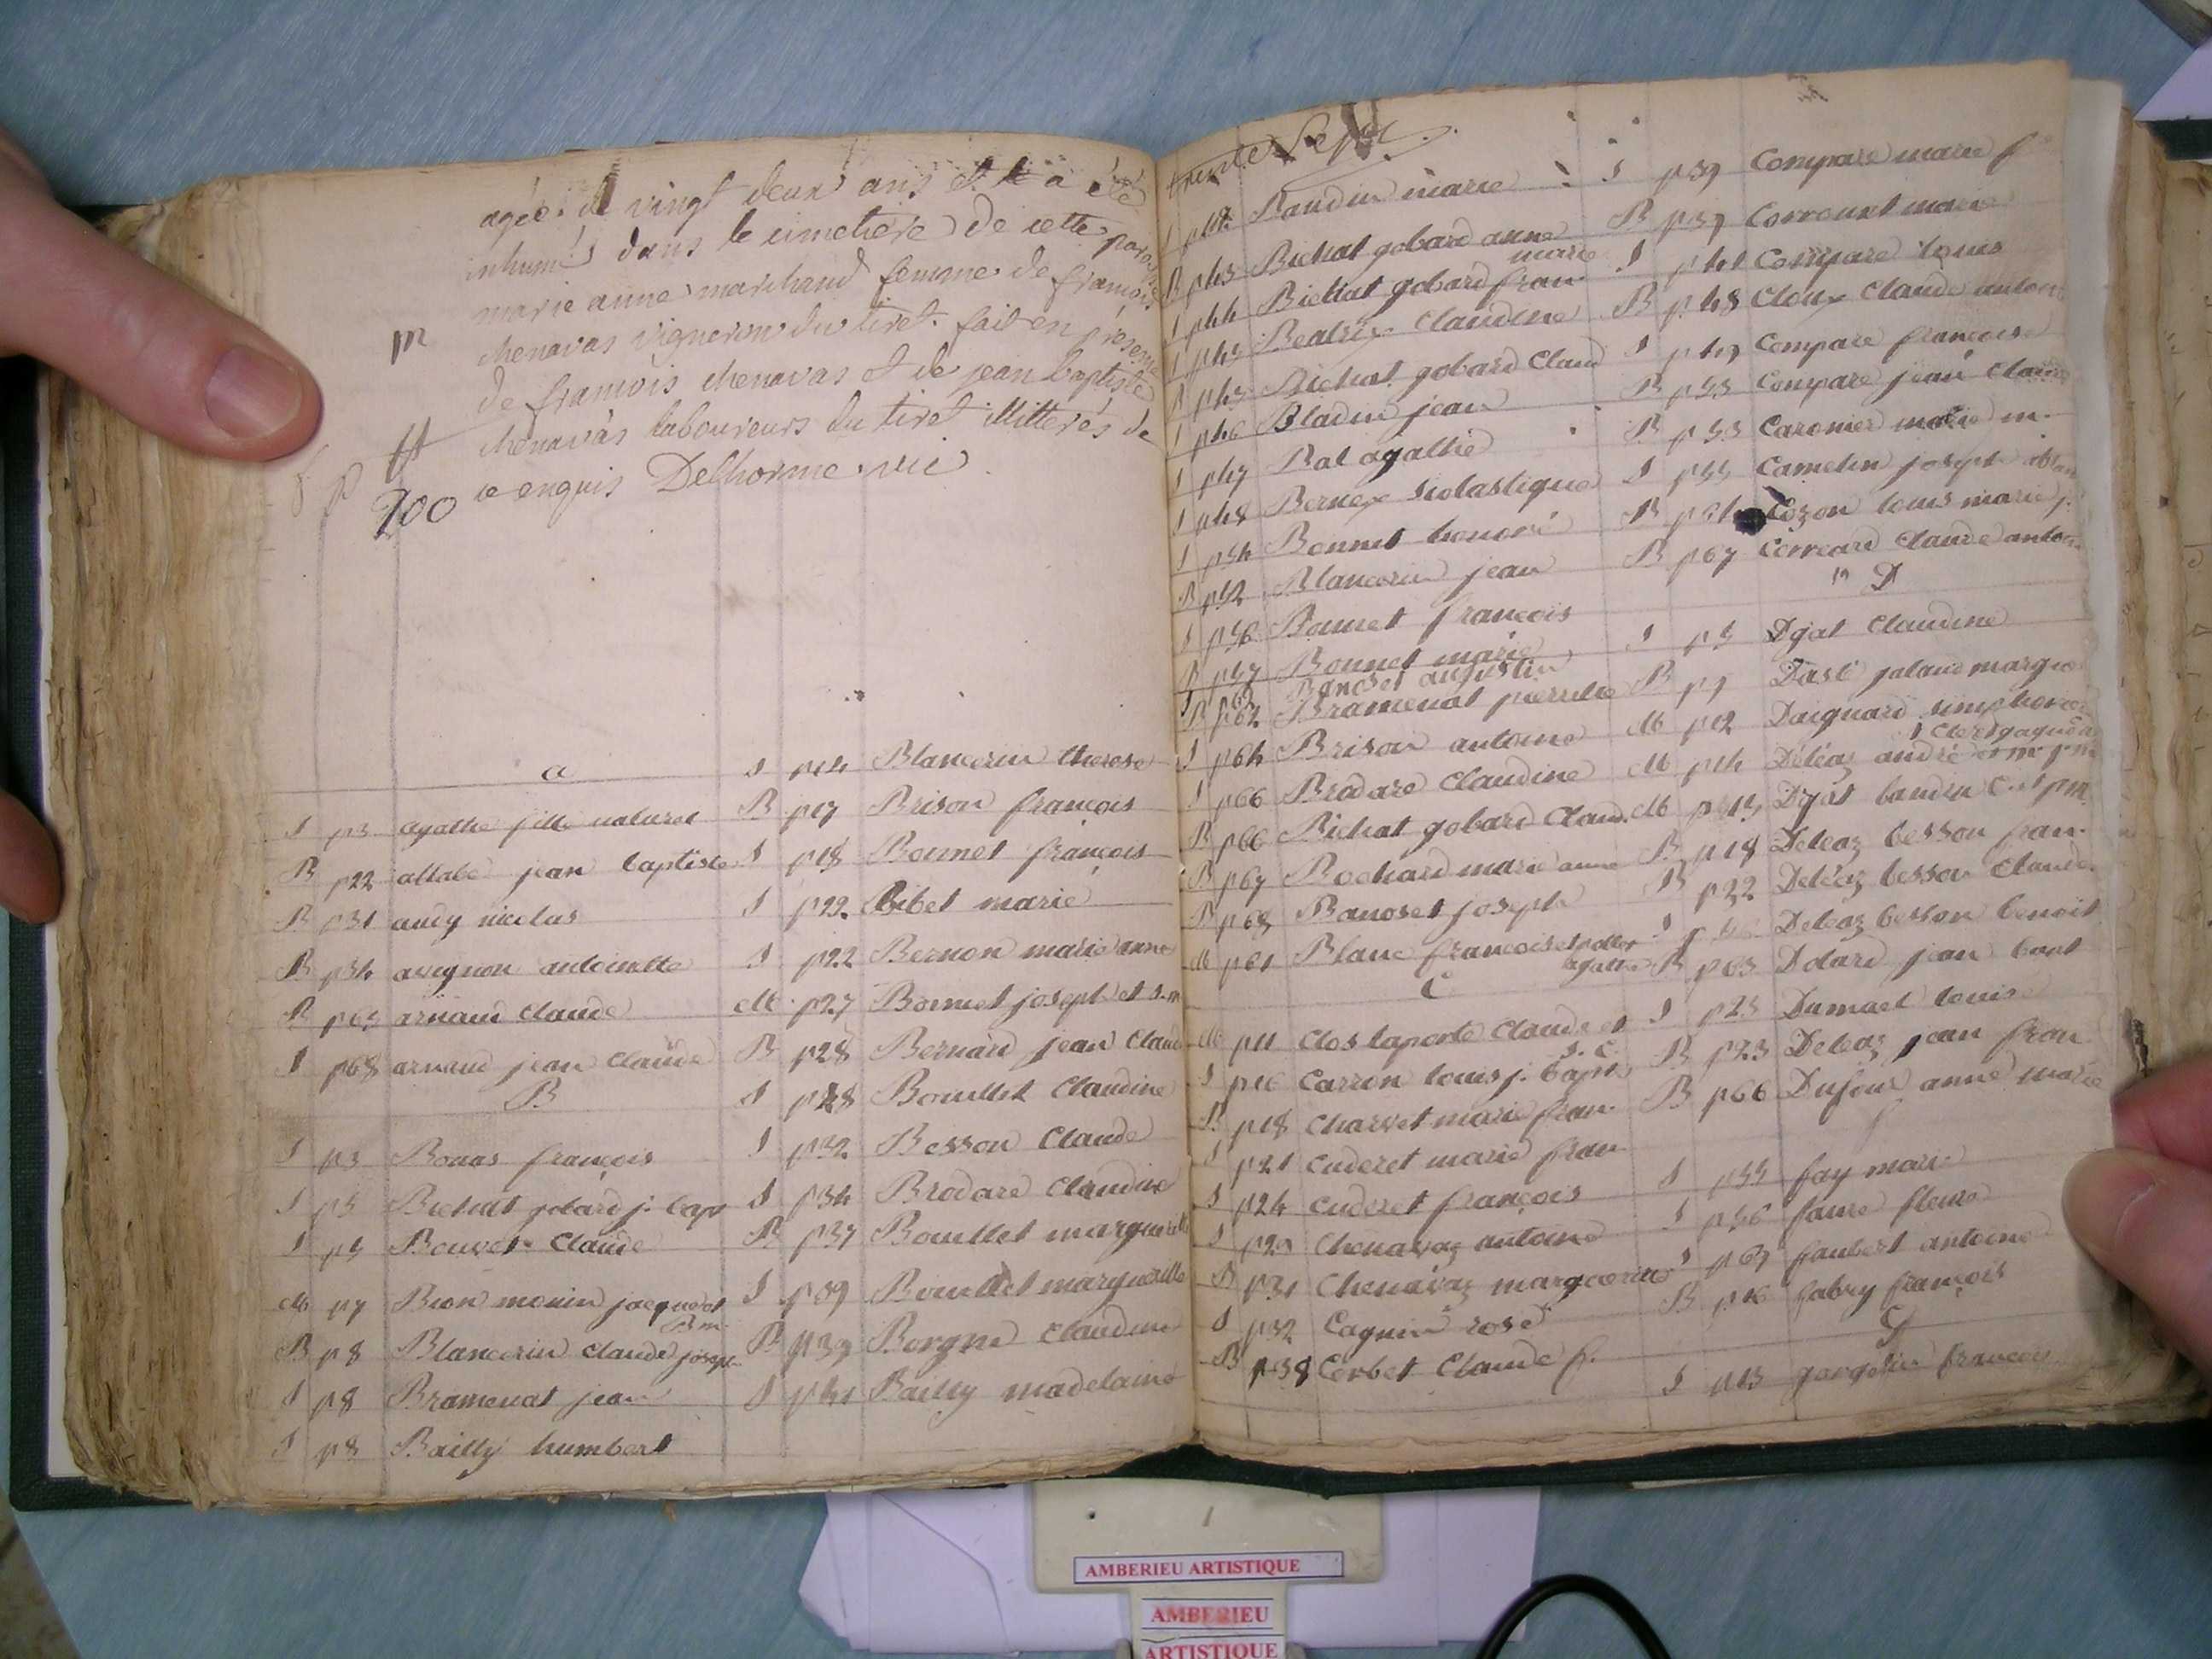 agée de vingt deux ans et a été
inhumés dans le cimetière de cette paroisse
marie anne marchand femme de francois
chenavas vigneron du tiret fait en présence
de francois chenavas et de jean baptiste
chenavas laboureurs du tiret illitterés de
ce enquis Delhorme vic
200
a
S p3 agathe fille naturel
B p22 allabé jean baptiste
B p31 audy nicolas
B p34 avignon antoinette
B arnaud Claude
S p68 arnaud jean Claude
B
S p3 Bonas françois
S p5 Bichat gobard j. bap
S p5 Bouvet Claude
M p7 Bion monin jacque et
B m
B p8 Blancerin Claude joseph
S p8 Bramerat jean
S p8 Bailly humbert
S p14 Blancerin therese
B p17 Brison françois
S p18 Bonnet françois
S p22 Bibet marie
S p22 Bernon marie anne
M p27 Bonnet joseph et
B p28 Bernard jean Claude
S p28 Bouillet Claudine
S p32 Besson Claude
S p34 Brodare Claudine
B p37 Bouillet marguerite
S p39 Bouillet marguerite
B p39 Borgne Claudine
S p41 Bailly madelaine
trente sept
S p42 Baudin marie
B p43 Bichat gobard anne
marie
S p44 Bichat gobard fran
S p45 Beatrix Claudine
B p45 Bichat gobard Claud
S p46 Bladin jean
S p47 Bal agathe
S p48 Bernex Scolastique
S p54 Bonnet honoré
B p52 Blancerin jean
S p56 Bonnet françois
B p57 Bonnet marie
S p62 Bancset augustin
B p62 Bramerat pierrette
S p64 Brison antoine
S p66 Brodare Claudine
B p66 Bichat gobard Claud.
B p67 Bochard marie anne
B p68 Banoset joseph
M p61 Blanc françois et
agathe
C
M p11 Clos laporte Claude et
S. C.
S p16 Carron louis j. bapt
B p18 Charvet marie fran.
S p21 Cuderet marie fran
S p24 Cuderet françois
S p29 Chenavaz antoine
B p31 Chenavaz marguerite
S p32 Cagnin rose
B p38 Corbet Claude f.
S p39 Compare marie f
B p39 Correunt marie
S p41 Compare louis
B p48 Cloux Claude antoine
S p49 Compare françoise
B p53 Compare jean Claude
B p53 Caronier marie m.
S p55 Camelin joseph
B Cozon louis marie j.
B p67 Correard Claude antoine
D
S p5 Djat Claudine
B p9 Dasle jaland margue
M p12 Daignard simphorien
M p14 Deléaz andré
M Djat
B p18 Deléaz besson fran.
B p22 Deléaz besson Claude
S Deléaz besson benoit
B p63 Dolard jean bapt
S p23 Dumael louise
B p23 Deleaz jean fran
B p66 Dufour anne marie
f
S p55 fay marie
S p56 faure fleurie
S p67 faubert antoine
B p16 fabry françois
G
S p13 gorgelin françois
AMBERIEU ARTISTIQUE
AMBERIEU
ARTISTIQUE